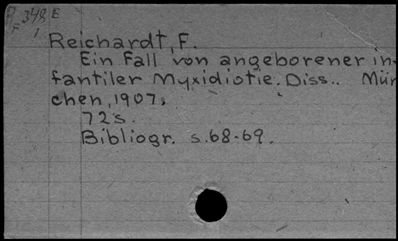 348 E
Reichardt, F.
Ein Fall von angeborener in-
fantiler Myxidiotie. Diss.. Mün
chen, 1907.
72s.
Bibliogr. s.68-69.